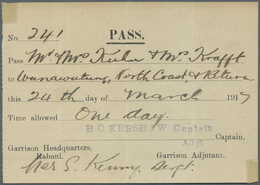 PASS.
No. 241
Pass Mr. Mrs Kuhn & Mrs Krafft
to Wanawutung, North Coast & Return
this 24th day of March 1917
Time allowed One day.
R C KERSHAW Captain
Adjt
Captain,
Garrison Headquarters,
Garrison Adjutant.
Rabaul.
Kenny, Sergt.